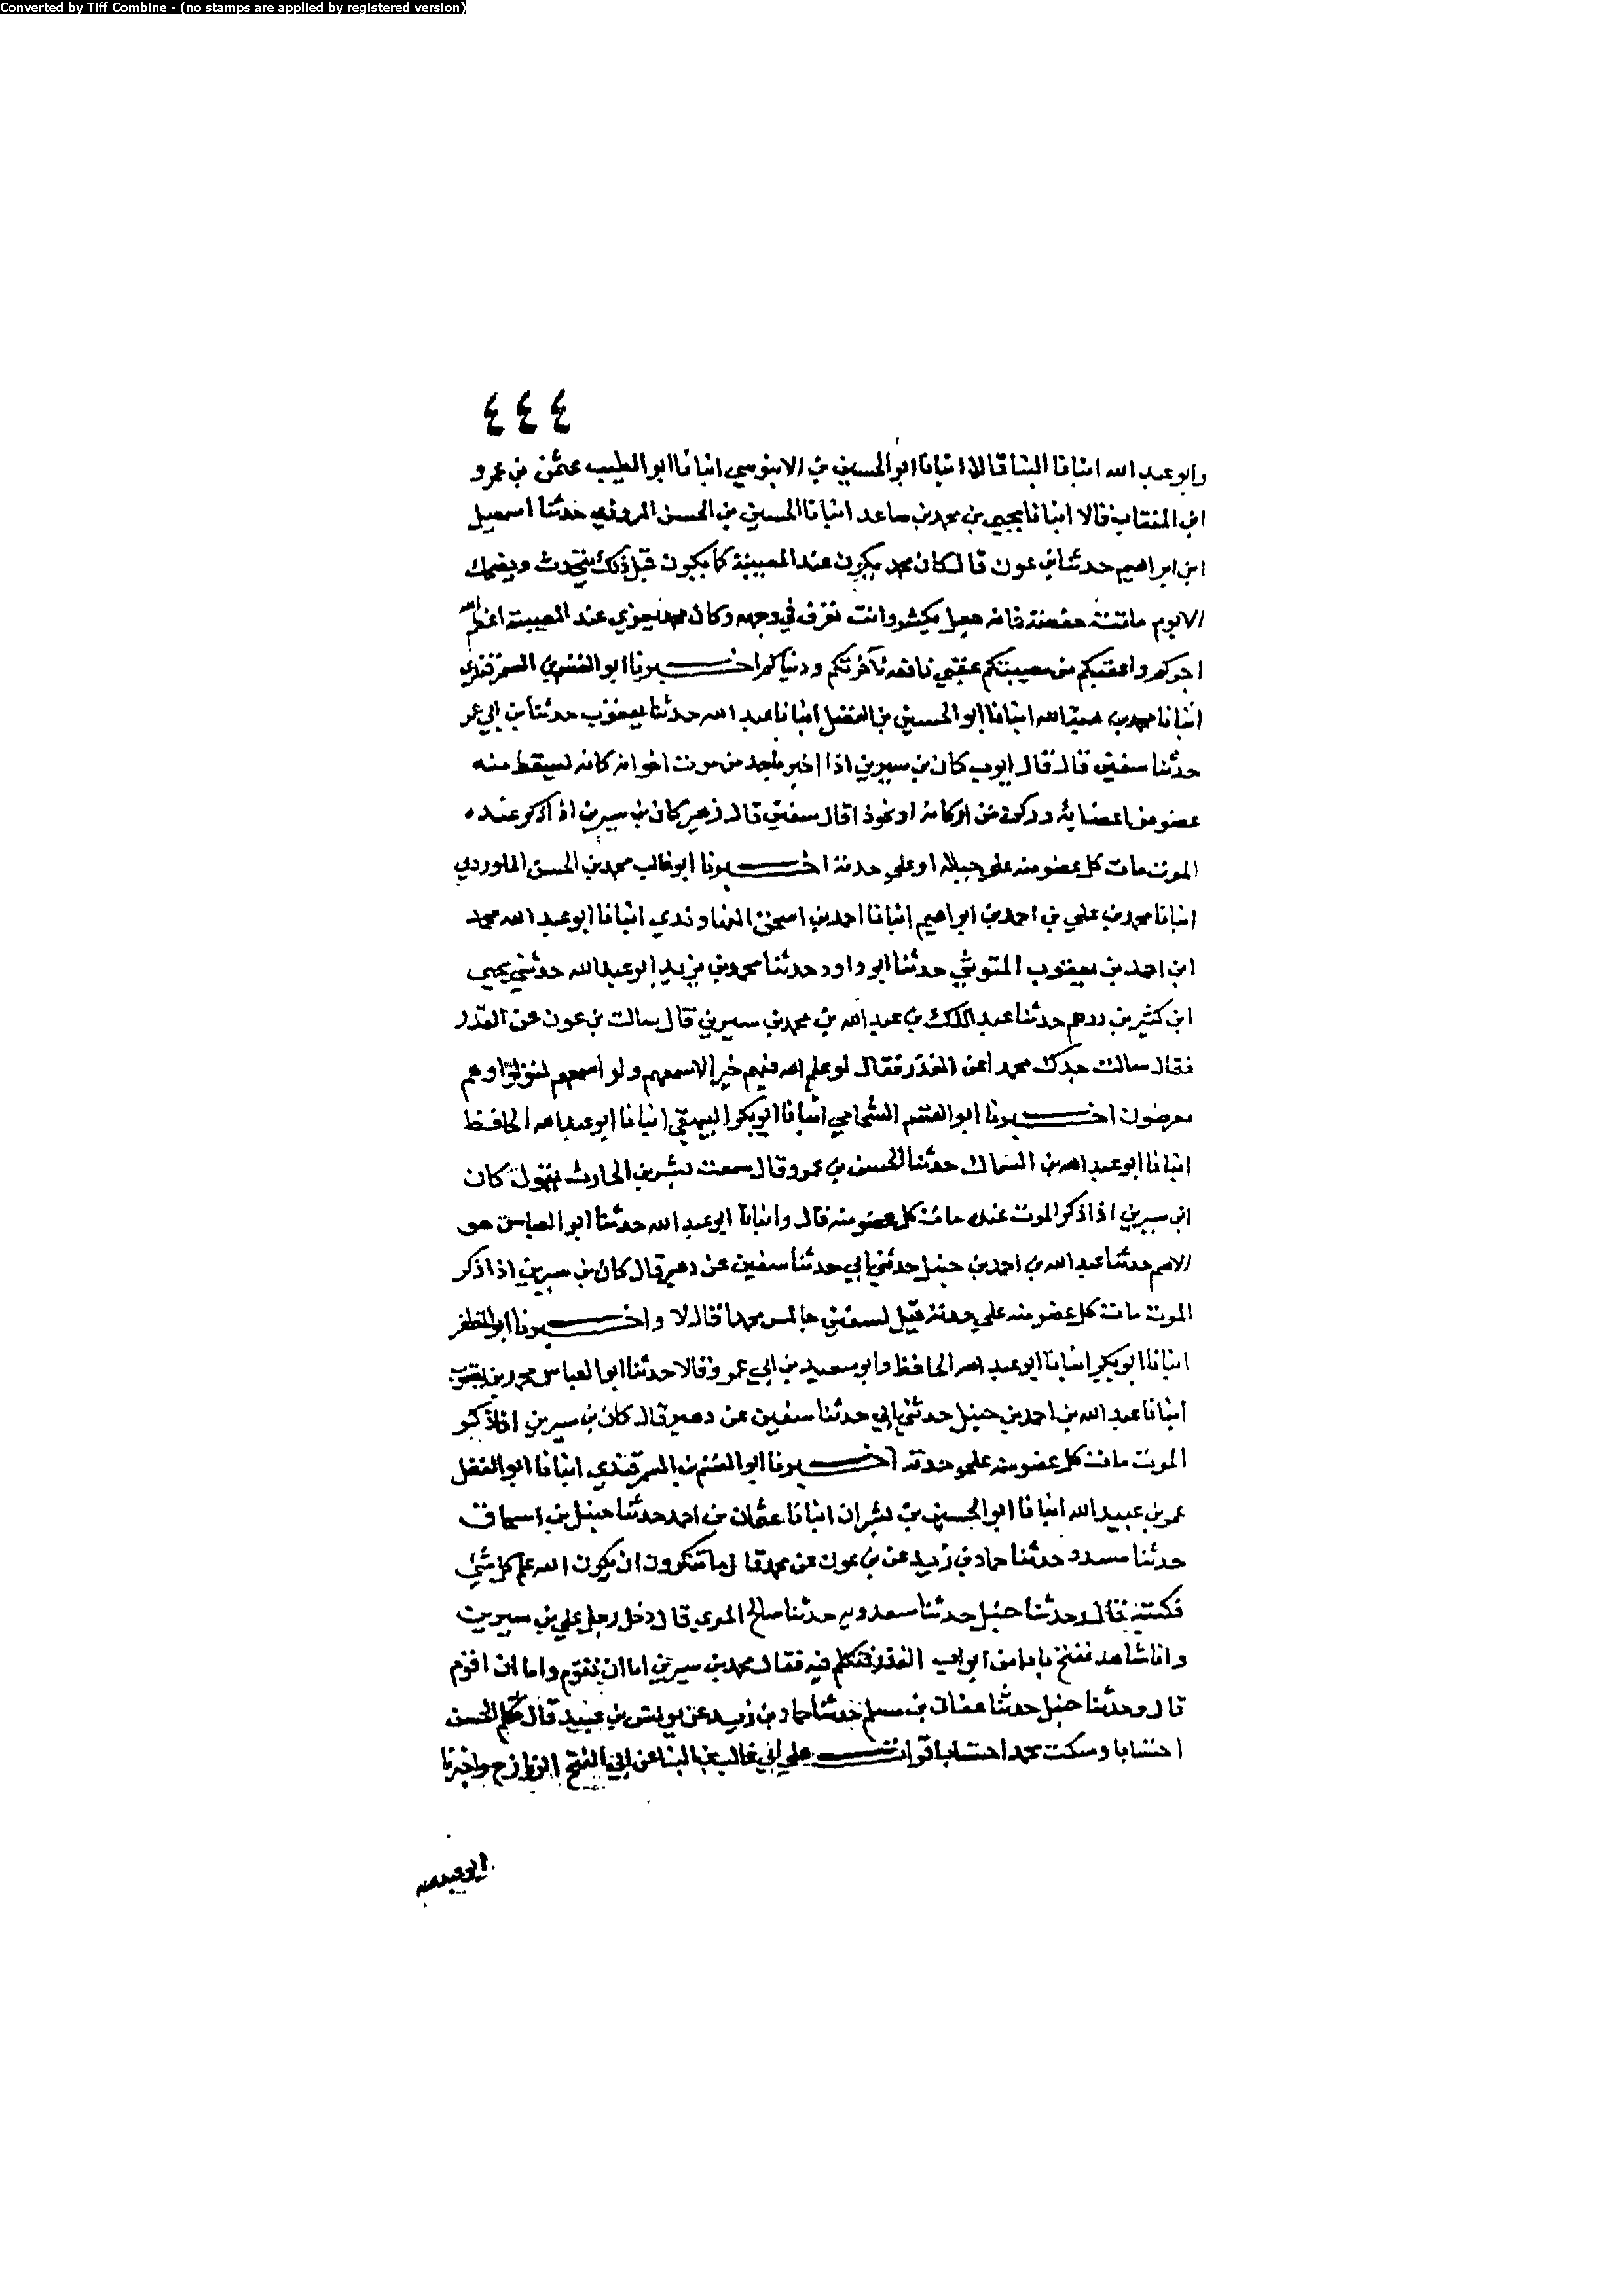 Converted by Tiff Combine - (no stamps are applied by registered version)
٤٤٤
وابو عبد الله انبانا البنا قالا انبانا ابو الحسين بن الابنوسي انبانا ابو الطيب عثمن بن عمرو
ابن المنتاب قالا انبانا يحيى بن محمد بن صاعد انبانا الحسين بن الحسن المروزي حدثنا اسمعيل
ابن ابراهيم حدثنا بن عون قال كان محمد يكون عند المصيبة كما يكون قبل ذلك يتحدث ويضحك
الا يوم ماتت حفصة فانه جعل يكشر وانت تعرف في وجهه وكان محمد يعزي عند المصيبة اعظم الله
اجركم واعقبكم من مصيبتكم عقبى نافعة لآخرتكم ودنياكم اخبرنا ابو القسم بن السمرقندي
انبانا محمد بن هبة الله انبانا ابو الحسين بن الفضل انبانا عبد الله حدثنا يعقوب حدثنا بن ابي عمر
حدثنا سفين قال قال ايوب كان بن سيرين اذا اخبر من موت اخوانه كانه يسقط منه
عضو من اعضايه من اركانه او نحو ذا قال سفين قال زهير كان بن سيرين اذا ذكر عنده
الموت مات كل عضو منه على حياله او على حدته اخبرنا ابو غالب محمد بن الحسن الماوردي
انبانا محمد بن علي بن احمد بن ابراهيم انبانا احمد بن اسحق النهاوندي انبانا ابو عبد الله محمد
ابن احمد بن يعقوب المتوثي حدثنا ابو داود حدثنا محمد بن يزيد ابو عبد الله حدثني يحيى
ابن كثير بن درهم حدثنا عبد الملك بن عبد الله بن محمد بن سيرين قال سالت بن عون عن القدر
فقال سالت جدك محمدا عن القدر فقال لو علم الله فيهم خيرا لاسمعهم ولو اسمعهم لتولوا وهم
معرضون اخبرنا ابو القسم الشحامي انبانا ابو بكر البيهقي انبانا ابو عبد الله الحافظ
انبانا ابو عبد الله بن السماك حدثنا الحسن بن عمرو قال سمعت بشر بن الحارث يقول كان
ابن سيرين اذا ذكر الموت عنده مات كل عضو منه قال وانبانا ابو عبد الله حدثنا ابو العباس هو
الاصم حدثنا عبد الله بن احمد بن حنبل حدثني ابي حدثنا سفين عن زهير قال كان بن سيرين اذا ذكر
الموت مات كل عضو منه على حدته قيل لسفين جالس محمدا قال لا واخبرنا ابو المظفر
انبانا ابو بكر انبانا ابو عبد الله الحافظ وابو سعيد بن ابي عمرو قالا حدثنا ابو العباس محمد بن يعقوب
انبانا عبد الله بن احمد بن حنبل حدثني ابي حدثنا سفين عن زهير قال كان بن سيرين اذا ذكر
الموت مات كل عضو منه على حدته اخبرنا ابو القسم بن السمرقندي انبانا ابو الفضل
عمر بن عبيد الله انبانا ابو الحسين بن بشران انبانا عثمان بن احمد حدثنا حنبل بن اسحاق
حدثنا مسدد حدثنا حماد بن زيد عن بن عون عن محمد قال ما تنكرون ان يكون الله علم كل شيء
فكتبه قال وحدثنا حنبل حدثنا سعدويه حدثنا صالح المري قال دخل رجل على بن سيرين
وانا شاهد ففتح بابا من ابواب القدر فتكلم فيه فقال محمد بن سيرين اما ان تقوم واما ان اقوم
قال وحدثنا حنبل حدثنا عفان بن مسلم حدثنا حماد بن زيد عن يونس بن عبيد قال تكلم الحسن
احتسابا وسكت محمد احتسابا قرات على ابي غالب بن البنا عن ابي الفتح الرزاز ح واخبرنا
ابو عبد الله